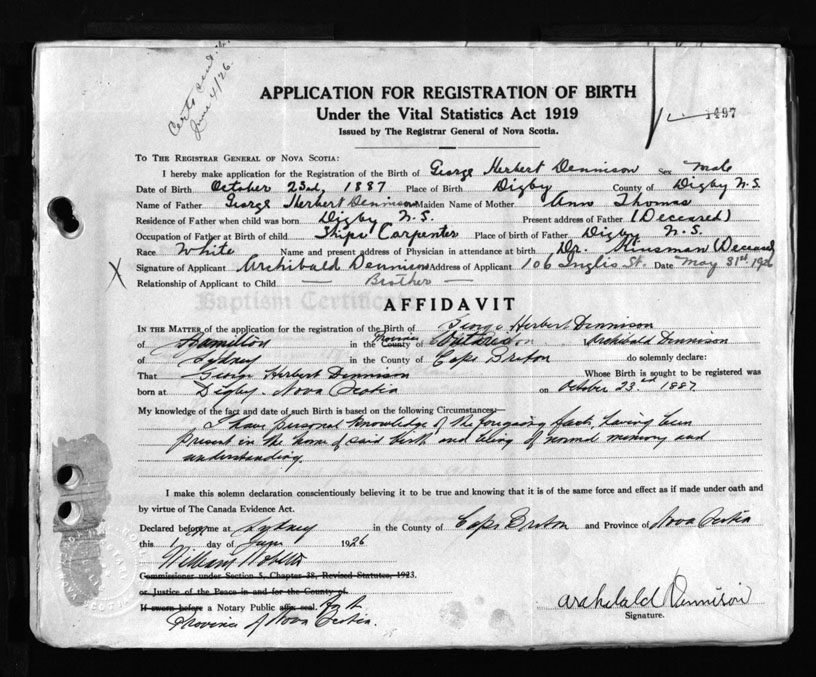 Certs sent
June 4/26.
APPLICATION FOR REGISTRATION OF BIRTH
Under the Vital Statistics Act 1919
1497
Issued by The Registrar General of Nova Scotia.
TO THE REGISTRAR GENERAL OF NOVA SCOTIA:
I hereby make application for the Registration of the Birth of George Herbert Dennison Sex Male
Date of Birth October 23rd, 1887 Place of Birth Digby County of Digby N.S.
Name of Father George Herbert Dennison Maiden Name of Mother Ann Thomas
Residence of Father when child was born Digby N.S. Present address of Father (Deceased)
Occupation of Father at Birth of child Ships Carpenter Place of birth of Father Digby N.S.
Race White Name and present address of Physician in attendance at birth Dr. Kinsman (Deceased
X Signature of Applicant Archibald Dennison Address of Applicant 106 Inglis St. Date May 31st. 1926
Relationship of Applicant to Child — Brother —
Baptism Certificate
AFFIDAVIT
IN THE MATTER of the application for the registration of the Birth of George Herbert Dennison
of Hamilton in the Province County of Ontario I, Archibald Dennison
of Sydney in the County of Cape Breton do solemnly declare:
That George Herbert Dennison Whose Birth is sought to be registered was
born at Digby, Nova Scotia on October 23rd 1887.
My knowledge of the fact and date of such Birth is based on the following Circumstances:
I have personal knowledge of the foregoing facts, having been
present in the home of said birth and being of normal memory and
understanding.
I make this solemn declaration conscientiously believing it to be true and knowing that it is of the same force and effect as if made under oath and
by virtue of The Canada Evidence Act.
Declared before me at Sydney in the County of Cape Breton and Province of Nova Scotia
this 1st day of June 1926
William
Commissioner under Section 5, Chapter 38, Revised Statutes, 1923.
or Justice of the Peace in and for the County of
If sworn before a Notary Public affix seal. for the
Province of Nova Scotia.
Archibald Dennison
Signature.